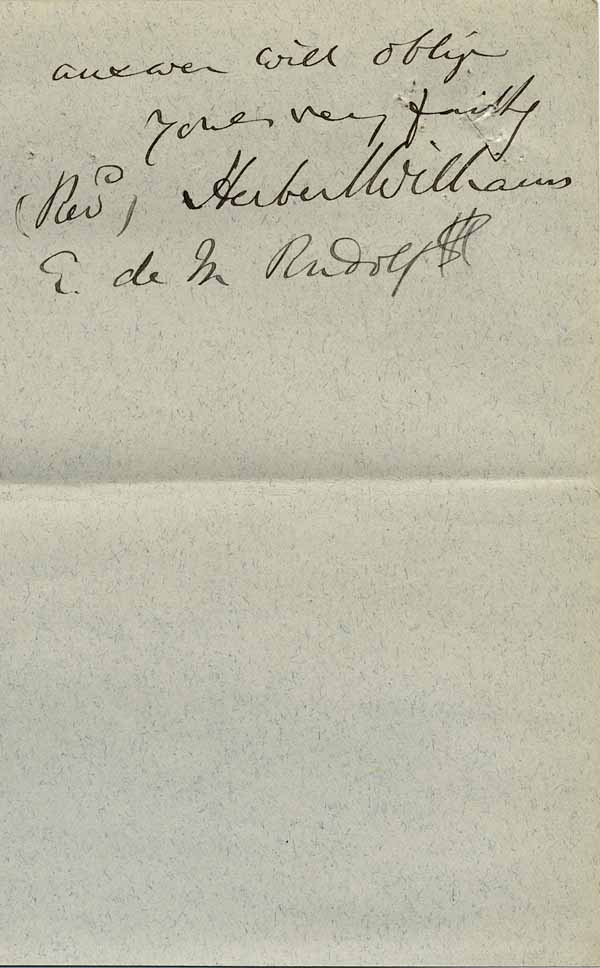 answer will oblige
Yours very faithly
(Revd) Herbert Williams
E. de M Rudolf